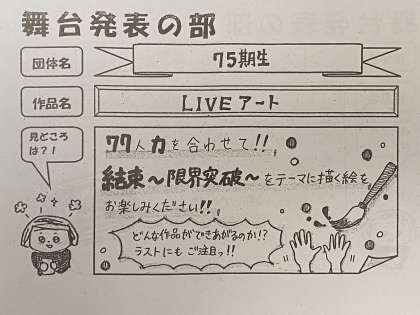 舞台発表の部
団体名
75期生
作品名
LIVEアート
見どころ
は?!
77人力を合わせて!!
結束〜限界突破〜をテーマに描く絵を
お楽しみください!!
どんな作品ができあがるのか!?
ラストにもご注目っ!!